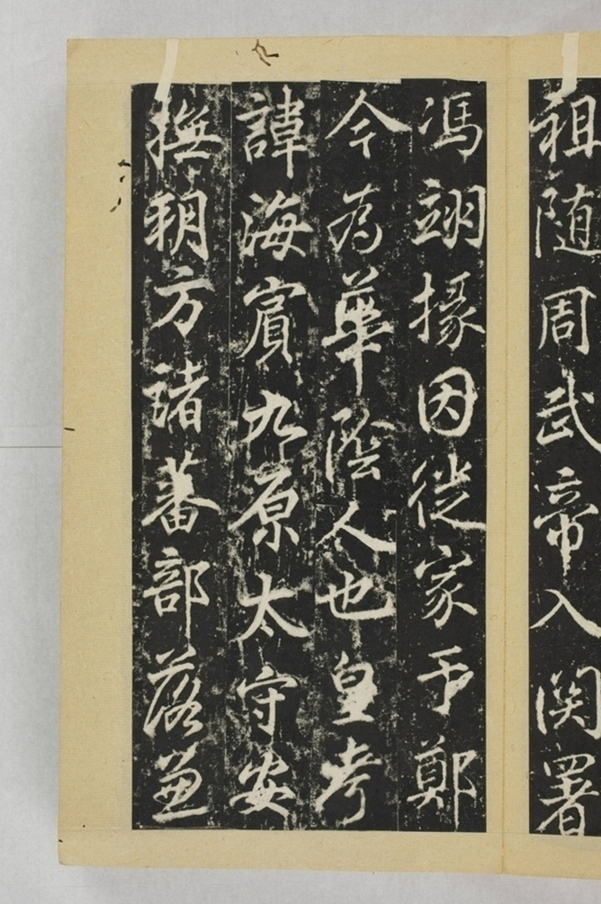 祖随周武帝入関署
馮翊掾因徙家于鄭
今為華陰人也皇考
諱海賓九原太守安
撫朔方諸蕃部落兼